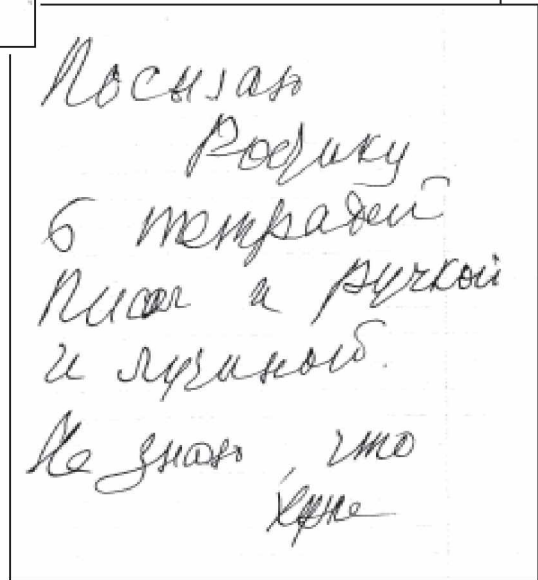 Посылаю
Родику
6 тетрадей
Писал и ручкой
и лучиной.
Не знаю, что
хуже